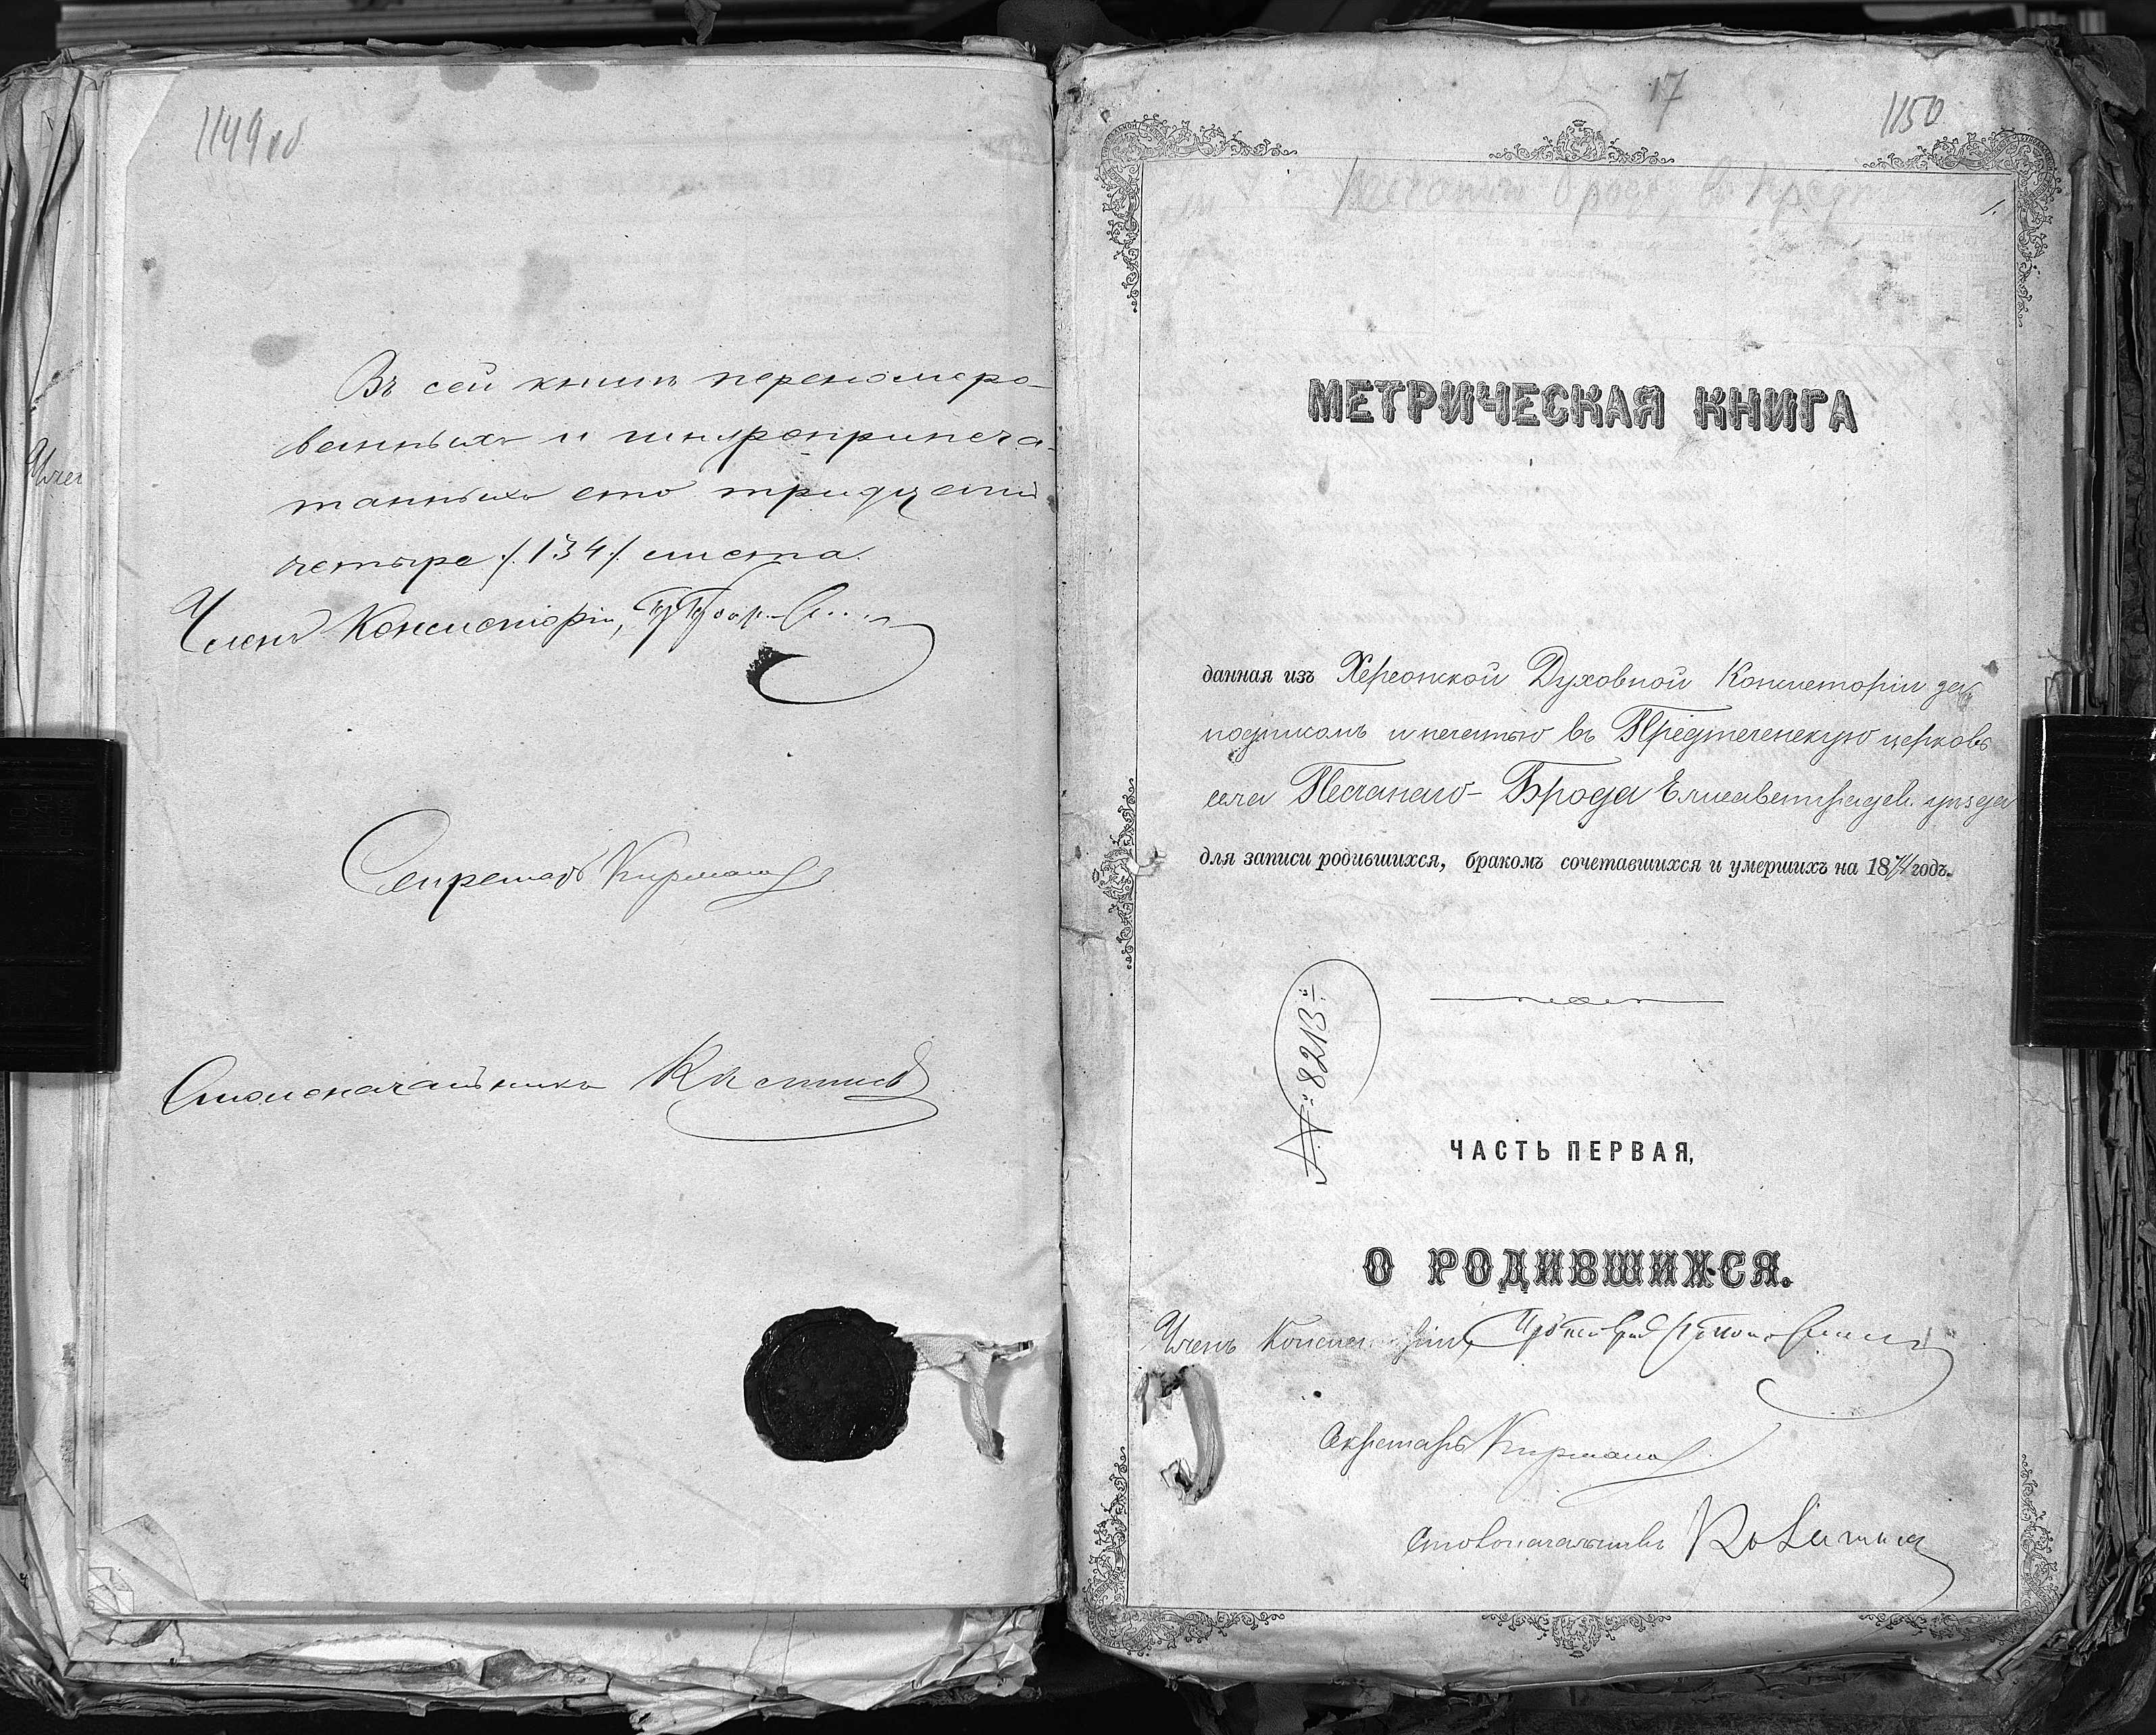 1149 об
Въ сей книгѣ переномеро-
ванныхъ и шнуроприпеча-
танныхъ сто тридцать
четыре /.134./ листа.
Членъ Консисторіи,
Секретарь
Столоначальникъ
Член
17
1150
1.
МЕТРИЧЕСКАЯ КНИГА
данная изъ Херсонской Духовной Консисторіи за
подписомъ и печатью въ Предтеченскую церковь
села Песчанаго-Брода Елисаветградск. уѣзда
для записи родившихся, бракомъ сочетавшихся и умершихъ на 18 годъ.
№ 8213
ЧАСТЬ ПЕРВАЯ,
О РОДИВШИХСЯ.
Членъ Консисторіи, Протоіерей
Секретарь
Столоначальникъ